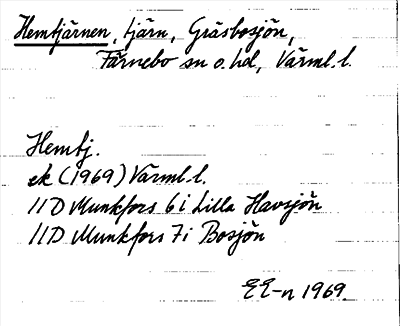 Hemtjärnen, tjärn, Gräsbosjön,
Färnebo sn o. hd, Värml. l.
Hemtj.
ek (1969) Värml. l.
11D Munkfors 6i Lilla Havsjön
11D Munkfors 7i Bosjön
EE-n 1969.